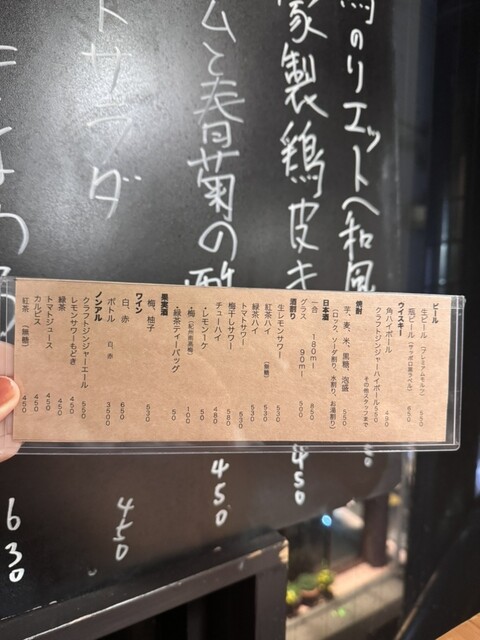 のリエットへ和風
家製鶏皮
ムと春菊の酢
トサラダ
450
450
450
630
ビール
生ビール（プレミアムモルツ） 550
瓶ビール（サッポロ赤ラベル） 650
ウイスキー
角ハイボール 490
クラフトジンジャーハイボール 550
その他スタッフまで
焼酎
芋、麦、米、黒糖、泡盛 550
（ロック、ソーダ割り、水割り、お湯割り）
日本酒
一合 180ml 850
グラス 90ml 500
酒割り
生レモンサワー 530
紅茶ハイ （無糖） 530
緑茶ハイ 530
トマトサワー 530
梅干しサワー 580
チューハイ 480
・レモンリーケ 50
・梅（紀州南高梅） 100
・緑茶ティーバッグ 50
果実酒
梅、柚子 530
ワイン
白、赤 650
ボトル 白、赤 3500
ノンアル
クラフトジンジャーエール 550
レモンサワーもどき 450
緑茶 450
トマトジュース 450
カルピス 450
紅茶 （無糖） 450